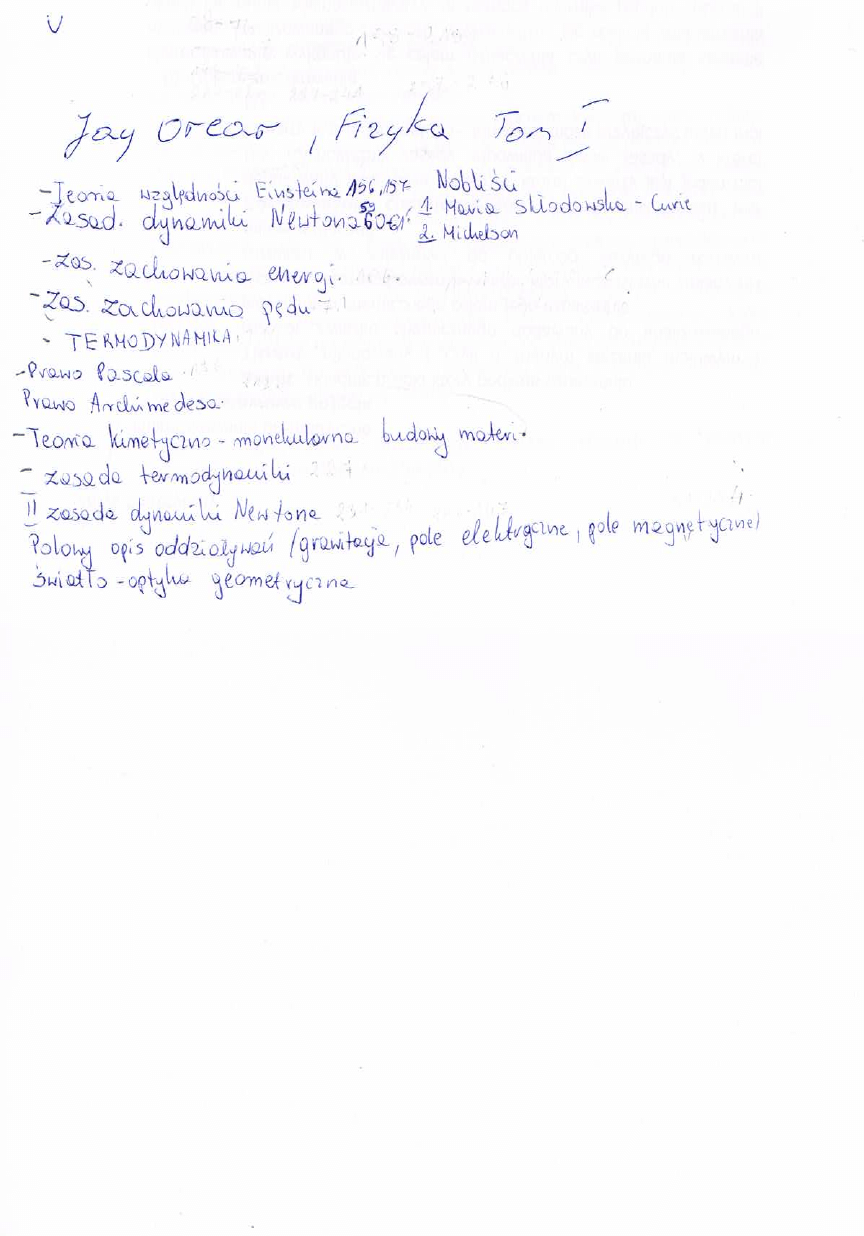 Jay Orear, Fizyka Tom I
- Teoria względności Einsteina 156, 157
- Zasad. dynamiki Newtona 59 60-61
Nobliści
1. Maria Skłodowska - Curie
2. Michelson
- Zas. zachowania energi.
- Zas. zachowania pędu
- TERMODYNAMIKA.
- Prawo Pascala
Prawo Archimedesa.
- Teoria kinetyczno - monekularna budowy materi.
- zasada termodynamiki
II zasada dynamiki Newtona
Polowy opis oddziaływań (grawitacja, pole elektryczne, pole magnetyczne)
światło - optyka geometryczna